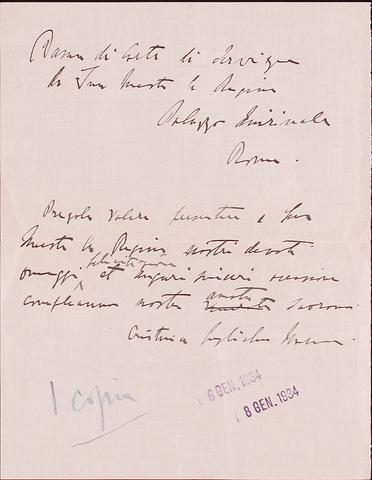 Dama di Corte di servizio
di Sua Maestà la Regina
Palazzo Quirinale
Roma.
Pregola volere presentare a Sua
Maestà la Regina nostri devoti
omaggi felicitazioni et auguri sinceri occasione
compleanno nostra amata Sovrana
Cristina
1 copia
6 GEN. 1934
8 GEN. 1934